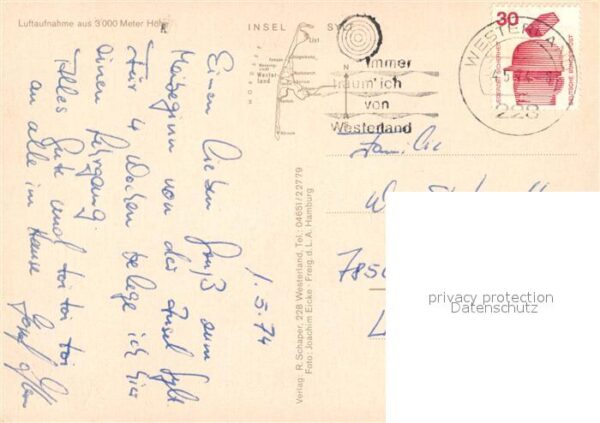 Luftaufnahme aus 3'000 Meter Höhe
INSEL SYLT
List
Westerland
Immer
träum' ich
von
Westerland
WESTERLAND
228
30
DEUTSCHE BUNDESPOST
1.5.74
Einen lieben Gruß zum
Maibeginn von der Insel Sylt
Für 4 Wochen belege ich hier
einen Lehrgang.
Alles Gute und toi toi toi
an alle im Hause
Verlag: R. Schaper, 228 Westerland, Tel.: 04651/22779
Foto: Joachim Eicke · Freig. d. L. A. Hamburg
Familie
785
privacy protection
Datenschutz